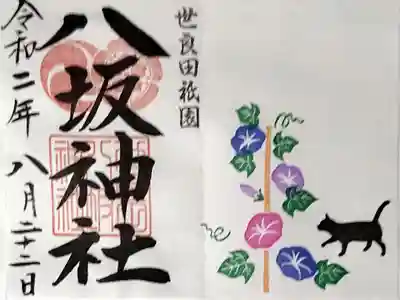 世良田祇園
八坂神社
令和二年八月二十二日